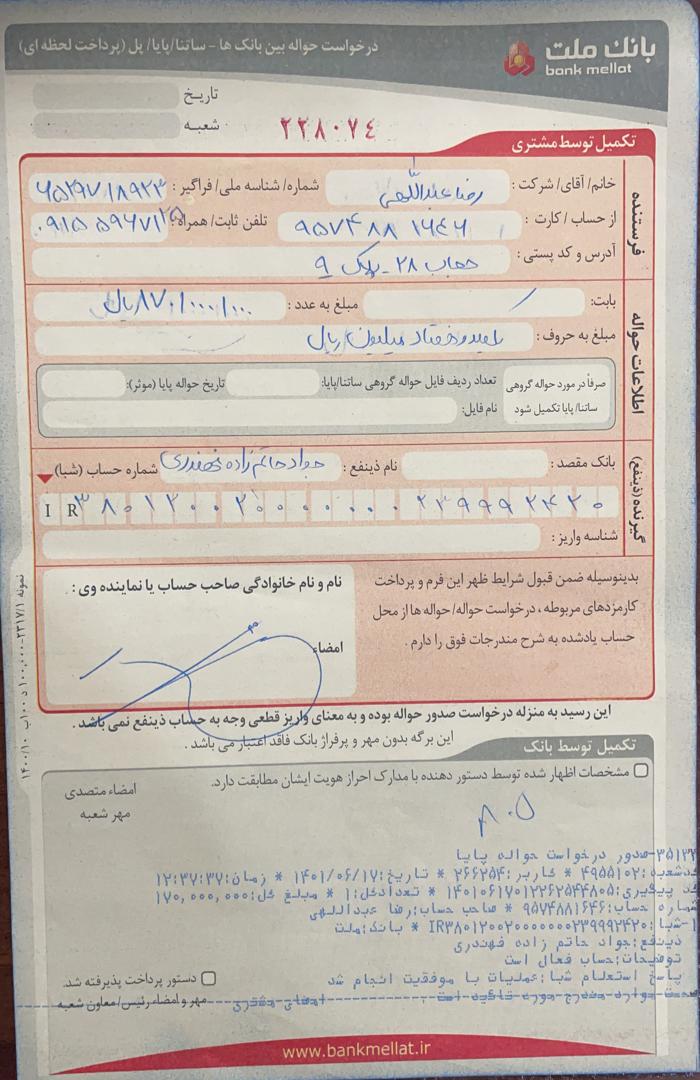 بانک ملت
bank mellat
درخواست حواله بین بانک ها - ساتنا/پایا/ پل (پرداخت لحظه ای)
تاریخ
شعبه
۲۲۸۰۷۴
تکمیل توسط مشتری
فرستنده
خانم/ آقای/ شرکت : رضا عبداللهی شماره/ شناسه ملی/ فراگیر :
از حساب/ کارت : ۹۵۷۴۸۸۱۶۴۶ تلفن ثابت/ همراه :
آدرس و کد پستی : ۲۸ - پلاک ۹
اطلاعات حواله
بابت: مبلغ به عدد : ۱۷۰/۰۰۰/۰۰۰ ریال
مبلغ به حروف : یکصد و هفتاد میلیون ریال
صرفاً در مورد حواله گروهی تعداد ردیف فایل حواله گروهی ساتنا/پایا: تاریخ حواله پایا (موثر):
ساتنا/ پایا تکمیل شود نام فایل:
گیرنده (ذینفع)
بانک مقصد : نام ذینفع : جواد حاتم زاده شماره حساب (شبا)
IR ۳۸۰۱۲۰۰۲۰۰۰۰۰۰۰۲۳۹۹۹۲۴۲۰
شناسه واریز :
بدینوسیله ضمن قبول شرایط ظهر این فرم و پرداخت
کارمزدهای مربوطه ، درخواست حواله/ حواله ها از محل
حساب یادشده به شرح مندرجات فوق را دارم .
نام و نام خانوادگی صاحب حساب یا نماینده وی :
امضاء
این رسید به منزله درخواست صدور حواله بوده و به معنای واریز قطعی وجه به حساب ذینفع نمی باشد .
این برگه بدون مهر و پرفراژ بانک فاقد اعتبار می باشد .
تکمیل توسط بانک
مشخصات اظهار شده توسط دستور دهنده با مدارک احراز هویت ایشان مطابقت دارد.
امضاء متصدی
مهر شعبه
۳۵۱۲۲-صدور درخواست حواله پایا
کدشعبه:۴۹۵۵۱۰۲ * کاربر:۲۶۶۲۵۴ * تاریخ:۱۴۰۱/۰۶/۱۷ * زمان:۱۲:۳۷:۳۷
کد پیگیری:۱۴۰۱۰۶۱۷۰۱۲۲۶۲۵۴۴۸۰۵ * تعدادکل:۱ * مبلغ کل:۱۷۰,۰۰۰,۰۰۰
شماره حساب:۹۵۷۴۸۸۱۶۴۶ * صاحب حساب:رضا عبداللهی
۱-شبا:IR۳۸۰۱۲۰۰۲۰۰۰۰۰۰۰۲۳۹۹۹۲۴۲۰ * بانک:ملت
ذینفع:جواد حاتم زاده قهندری
توضیحات:حساب فعال است
پاسخ استعلام شبا:عملیات با موفقیت انجام شد
صحت موارد مندرج مورد تائید است امضای مشتری
دستور پرداخت پذیرفته شد.
مهر و امضاء رئیس/ معاون شعبه
www.bankmellat.ir